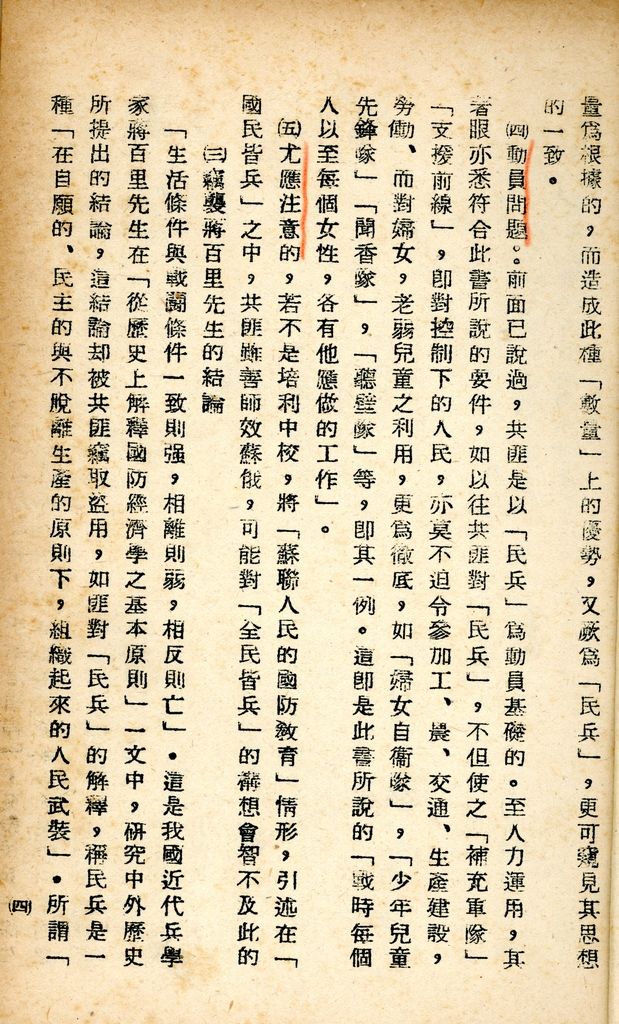 量爲根據的，而造成此種「數量」上的優勢，又厥爲「民兵」，更可窺見其思想
的一致。
㈣動員問題。前面已說過，共匪是以「民兵」爲動員基礎的。至人力運用，其
著眼亦悉符合此書所說的要件，如以往共匪對「民兵」，不但使之「補充軍隊」
「支援前線」，卽對控制下的人民，亦莫不迫令參加工、農、交通、生產建設，
勞働、而對婦女，老弱兒童之利用，更爲徹底，如「婦女自衞隊」，「少年兒童
先鋒隊」「聞香隊」，「聽壁隊」等，卽其一例。這卽是此書所說的「戰時每個
人以至每個女性，各有他應做的工作」。
㈤尤應注意的，若不是培利中校，將「蘇聯人民的國防敎育」情形，引述在「
國民皆兵」之中，共匪雖善師效蘇俄，可能對「全民皆兵」的構想會智不及此的
㈢竊襲蔣百里先生的結論
「生活條件與戰鬪條件一致則强，相離則弱，相反則亡」。這是我國近代兵學
家蔣百里先生在「從歷史上解釋國防經濟學之基本原則」一文中，研究中外歷史
所提出的結論，這結論却被共匪竊取盜用，如匪對「民兵」的解釋，稱民兵是一
種「在自願的、民主的與不脫離生產的原則下，組織起來的人民武裝」。所謂「
㈣